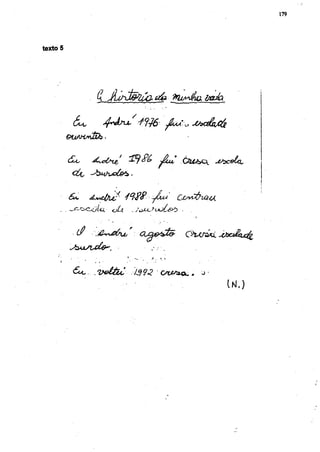 179
texto 5
A historia da minha vida
Eu André 1976 fui escolade
ouvintes.
Eu André 1986 fui escola
de surdos.
Eu André 1988 fui
escola de surdos.
O André agosto escolade
surdo.
Eu voltei 1992
(N.)